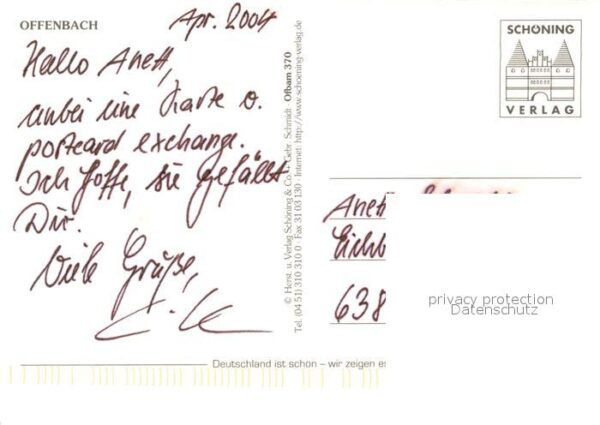 OFFENBACH
Apr. 2004
Hallo Anett,
anbei eine Karte v.
postcard exchange.
Ich hoffe, sie gefällt
Dir.
Viele Grüße,
© Herst. u. Verlag Schöning & Co + Gebr. Schmidt · Ofbam 370
Tel. (04 51) 310 310 0 · Fax 31 03 130 · Internet: http://www.schoening-verlag.de
SCHÖNING
VERLAG
Anett
638
privacy protection
Datenschutz
Deutschland ist schön – wir zeigen es